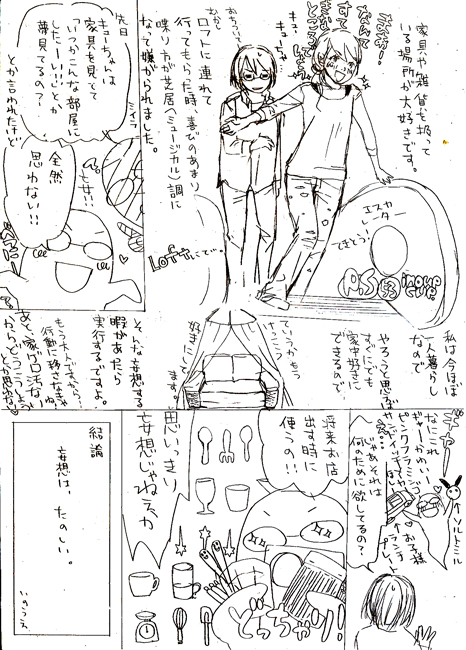 家具や雑貨を扱って
いる場所が大好きです。
すてき
なんて
すてき
ところなの
キュー
キューちゃん
おちついて
むかし
ロフトに連れて
行ってもらた時 喜びのあまり
喋り方が芝居(ミュージカル)調に
なって嫌がられました。
Loftにて。
エスカ
レーター
できとう
先日
ミイラ
キューちゃんは
家具を見てて
「いつかこんな部屋に
したーい!!」とか
夢見てるの?
とか言われたけど
全然
思わない!!
私は今ほぼ
一人暮らし
なので
やろうと思えば
すぐにでも
家中好きに
できるので
ていうかもう
けっこう
好きにしてます。
そんな妄想する
暇があたら
実行するですよ。
もう大人ですから…
行動に移さなきゃね。
あと、家がボロなし
からどうこうしよう
とか思わない
ギャー
なにこれ
ギャーかわいい
ピンクフラミンゴ
ソルトミル
お子様
ランチ
プレート
じゃあそれは
何のために欲してるの?
将来お店
出す時に
使うの!!
思いっきり
妄想じゃねえか
結論
妄想は、たのしい。